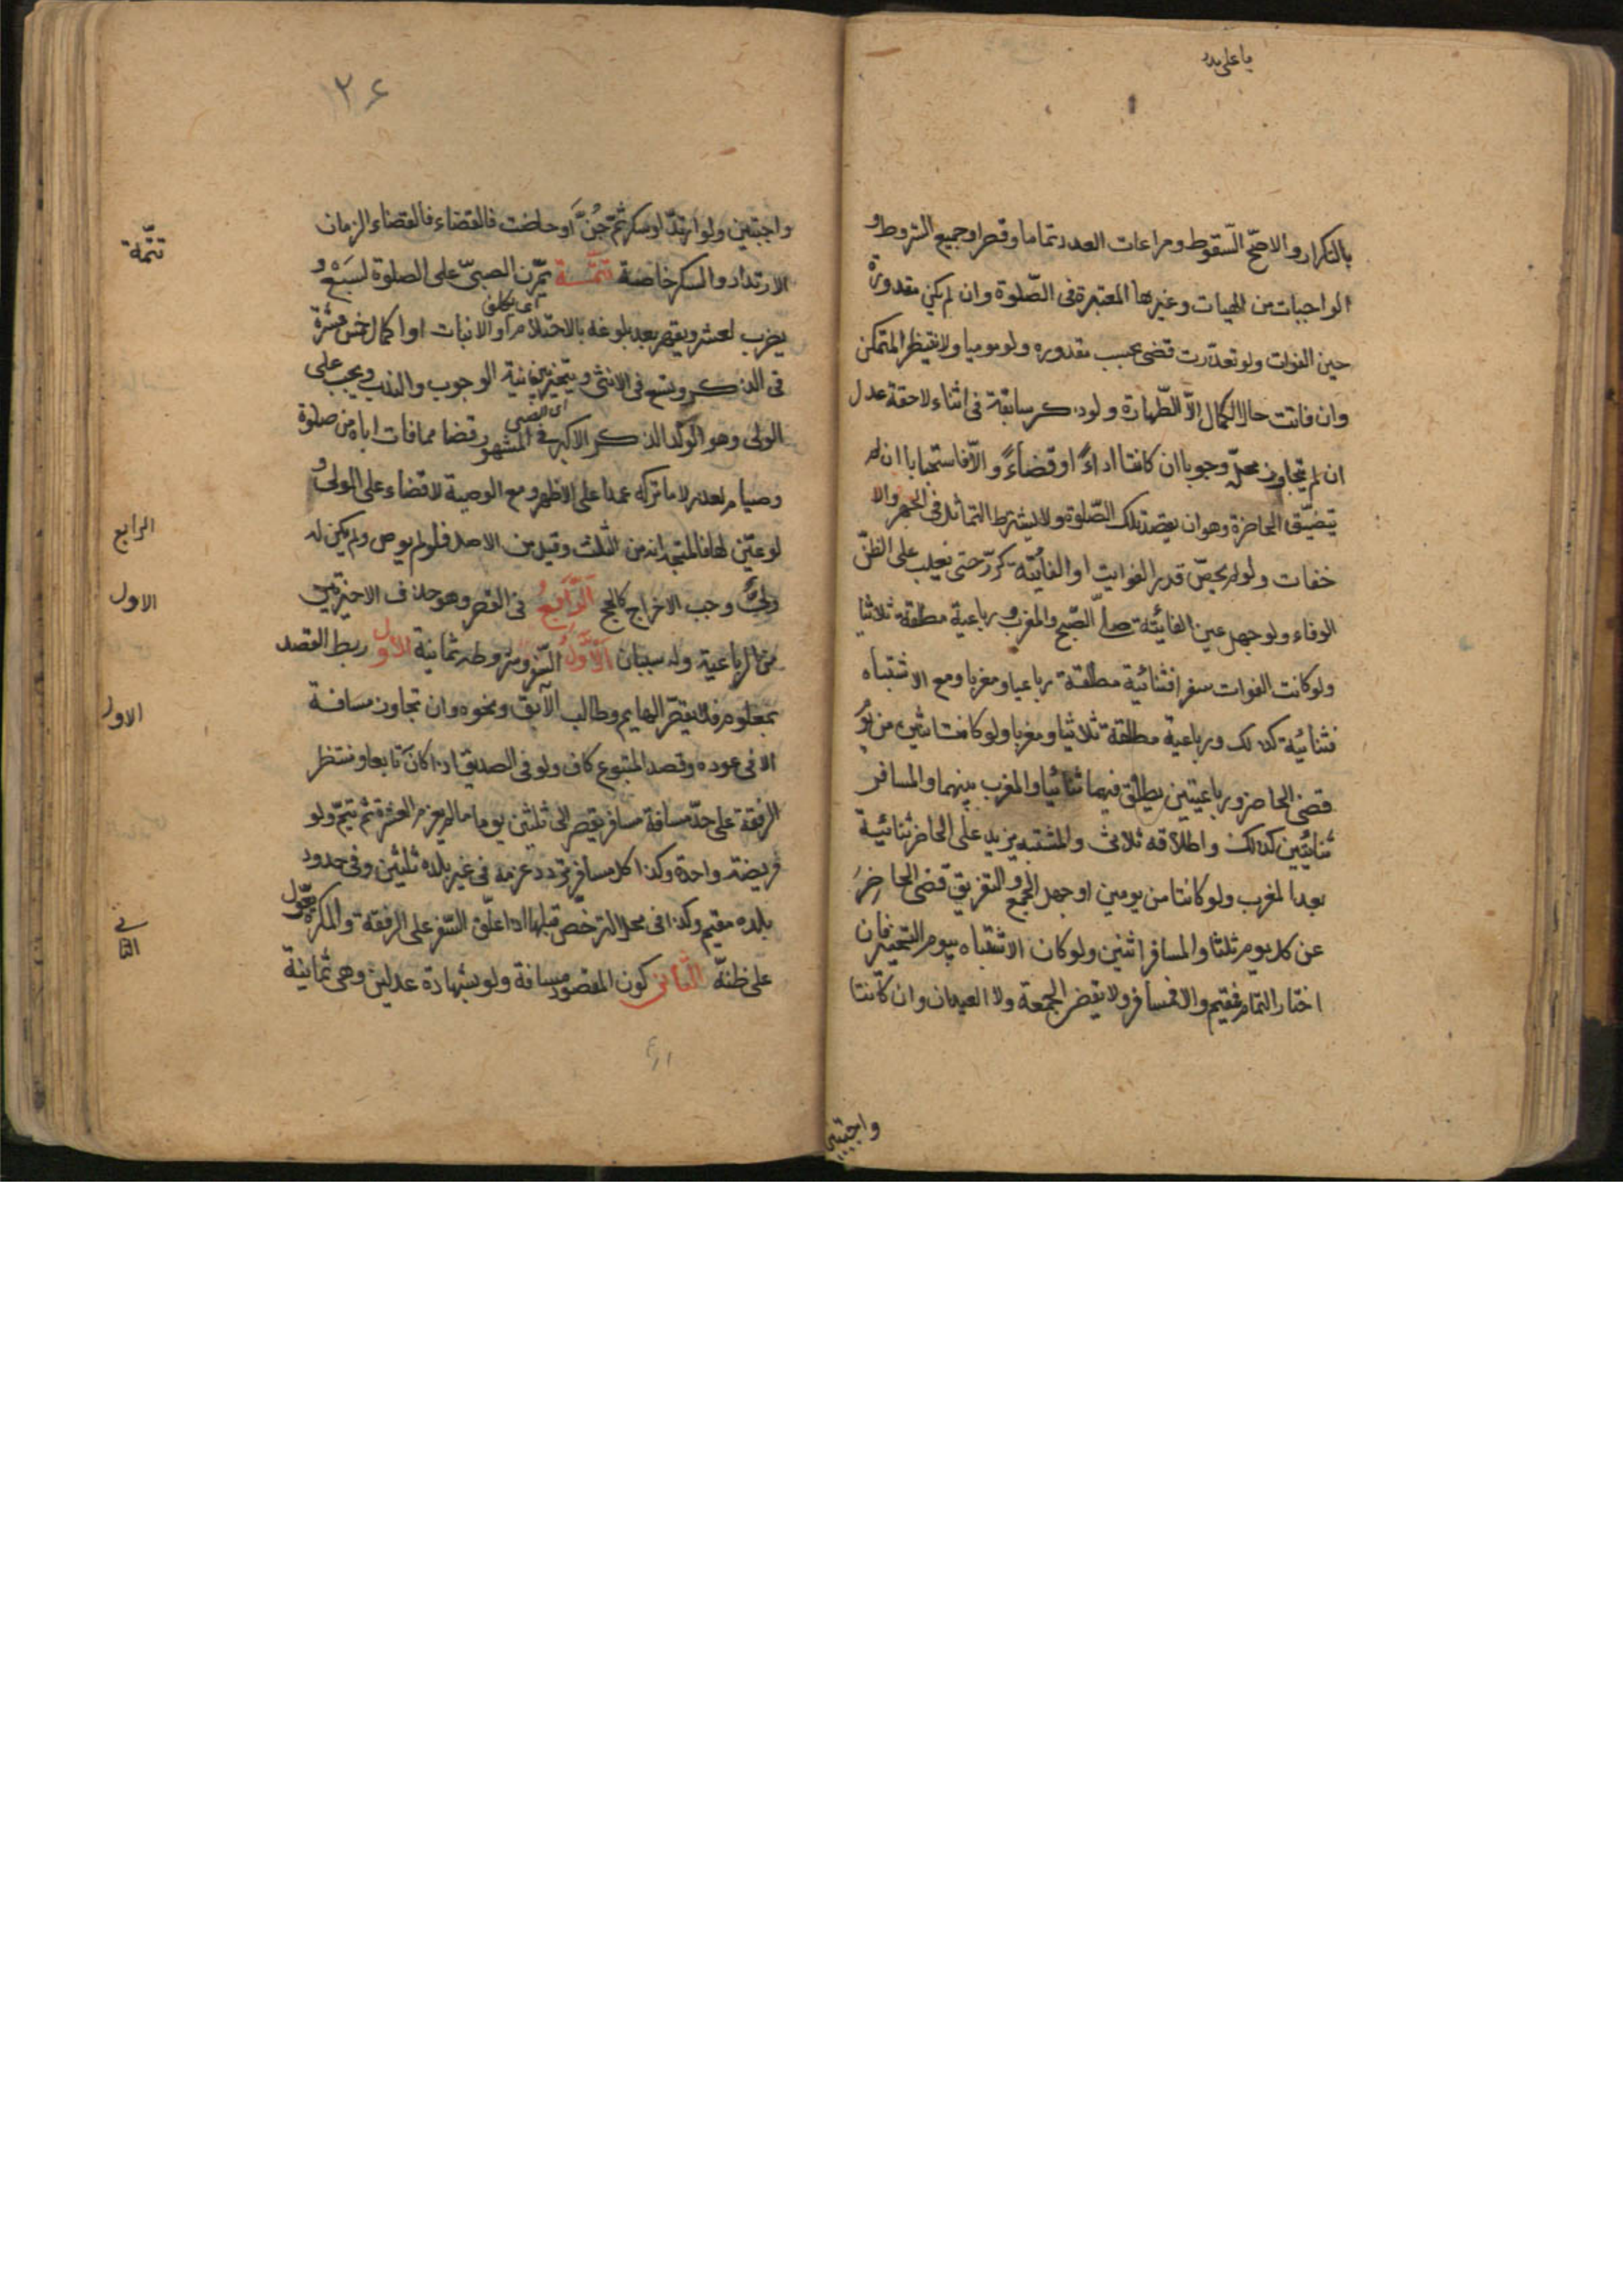 يا علي مدد
بالتكرار والاصحّ السّقوط ومراعات العدد تماما وقصرا وجميع الشروط و
الواجبات من الهيات وغيرها المعتبرة فى الصّلوة وان لم يكن مقدورة
حين الفوات ولو تعذّرت قضى بحسب مقدوره ولو موميا ولا ينتظر المتمكن
وان فاتت حال الكمال الّا الطّهارة ولو ذكر سابقة فى اثناء لاحقة عدل
ان لم يتجاوز محلّه وجوبا ان كانتا اداءً او قضاءً والّا فاستحبابا ان لم
يتضيّق الحاضرة وهو ان يقصد تلك الصّلوة ولا يشترط التماثل فى الجهر والا
خفات ولو لم يحصّ قدر الفوايت او الفائتة كرّر حتى يغلب على الظنّ
الوفاء ولو جهل عين الفائتة صلّى الصّبح والمغرب ورباعية مطلقة ثلاثيا
ولو كانت الفوات سفرا فثنائية مطلقة رباعيا ومغربا ومع الاشتباه
فثنائية كذلك ورباعية مطلقة ثلاثيا ومغربا ولو كانت اثنتين من يوم
قضى الحاضر رباعيتين يطلق فيهما ثنائيا والمغرب بينهما والمسافر
ثنائيتين كذلك واطلاقه ثلاثى والمشتبه يزيد على الحاضر ثنائية
بعد المغرب ولو كانتا من يومين او جهل الجمع والتفريق قضى الحاضر
عن كل يوم ثلثا والمسافر اثنتين ولو كان الاشتباه بيوم التخيير فان
اختار التمام فمقيم والا فمسافر ولا تقضى الجمعة ولا العيدان وان كانتا
واجبتين
٢٦
واجبتين ولو ارتدّ او سكر ثمّ جُنَّ او حاضت فالقضاء فالقضاء لزمان
الارتداد والسكر خاصة تتمّة يمّرن الصبىّ على الصلوة لسَبْعٍ و
يضرب لعشر ويقهر بعد بلوغه بالاحتلام او الانبات او اكمال خمس عشرة
فى الذكر وتسع فى الانثى ويتخير بين نية الوجوب والندب ويجب على
الولى وهو الولد الذكر الاكبر فى المشهور قضا ما فات اباه من صلوة
وصيام لعذر لا ما تركه عمدا على الاظهر ومع الوصية لا قضاء على الولى و
لو عيّن لها فالمتجه انه من الثلث وقيل من الاصل فلو لم يوص ولم يكن له
ولىٌّ وجب الاخراج كالحج الرّابعُ فى القصر وهو حذف الاخيرتين
من الرباعية وله سببان الاوّل السّفر وشروطه ثمانية الاول ربط القصد
بمعلوم فلا يقصّر الهايم وطالب الآبق ونحوه وان تجاوز مسافة
الا فى عوده وقصد المتبوع كاف ولو فى الصديق اذا كان تابعا ومنتظر
الرفقة على حدّ مسافة مسافر يقصر الى ثلثين يوما ما لم يعزم العشرة ثم يتمّ ولو
فريضة واحدة وكذا كل مسافر تردد عزمه فى غير بلده ثلثين وفى حدود
بلده مقيم وكذا فى محل الترخّص قبلها اذا علّق السّفر على الرفقة والمكره يعوّل
على ظنّه الثّانى كون المقصود مسافة ولو بشهادة عدلين وهى ثمانية
تتمّة
الرابع
الاول
الاول
الثانى